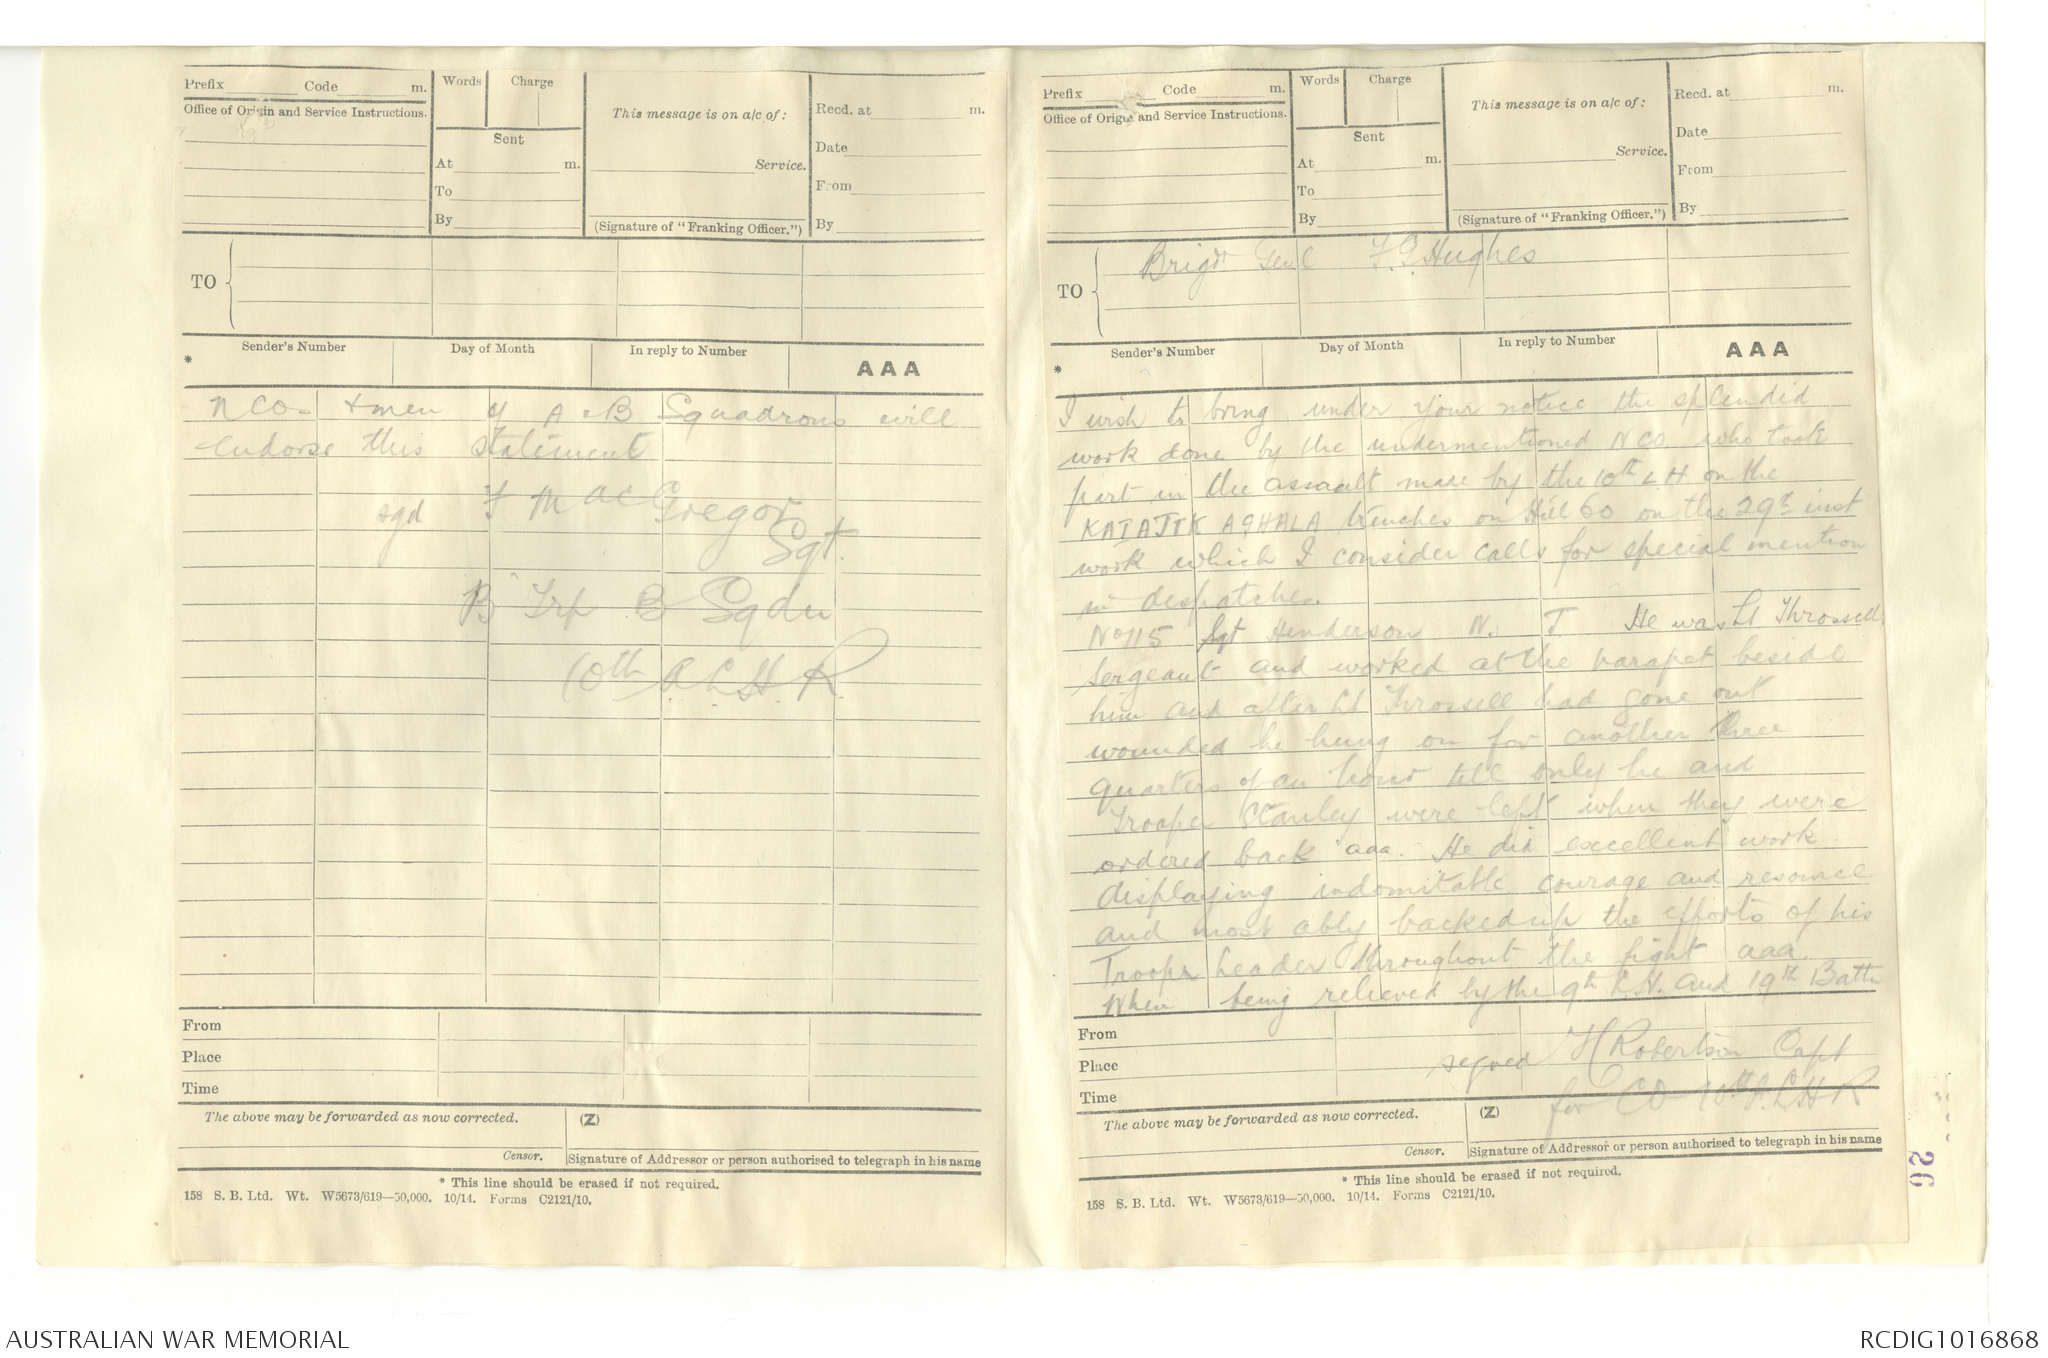 Prefix Code m.
Office of Origin and Service Instructions.
Words Charge
Sent
At m.
To
By
This message is on a/c of:
Service.
(Signature of "Franking Officer.")
Recd. at m.
Date
From
By
TO
Sender's Number Day of Month In reply to Number AAA
*
NCO- + men of A & B Squadrons will
endorse this statement
sgd F MacGregor
Sgt.
B Trp B Sqdn
10th A.L.H.R
From
Place
Time
The above may be forwarded as now corrected. (Z)
Censor. Signature of Addressor or person authorised to telegraph in his name
* This line should be erased if not required.
158 S. B. Ltd. Wt. W5673/619—50,000. 10/14. Forms C2121/10.
Prefix Code m.
Office of Origin and Service Instructions.
Words Charge
Sent
At m.
To
By
This message is on a/c of:
Service.
(Signature of "Franking Officer.")
Recd. at m.
Date
From
By
TO Brigr Genl F.G.Hughes
Sender's Number Day of Month In reply to Number AAA
*
I wish to bring under your notice the splendid
work done by the undermentioned NCO who took
part in the assault made by the 10th LH on the
KAIAJIK AGHALA trenches on Hill 60 on the 29th inst
work which I consider calls for special mention
in despatches.
No 115 Sgt Henderson N. J. He was Lt Throssell
Sergeant and worked at the parapet beside
him and after Lt Throssell had gone out
wounded he hung on for another three
quarters of an hour till only he and
Trooper Stanley were left when they were
ordered back aaa. He did excellent work
displaying indomitable courage and resource
and most ably backed up the efforts of his
Troop Leader throughout the fight aaa.
When being relieved by the 9th L.H. and 19th Battn
From
Place signed H Robertson Capt
Time for CO 10th A.L.H R
The above may be forwarded as now corrected. (Z)
Censor. Signature of Addressor or person authorised to telegraph in his name
* This line should be erased if not required.
158 S. B. Ltd. Wt. W5673/619—50,000. 10/14. Forms C2121/10.
26
AUSTRALIAN WAR MEMORIAL RCDIG1016868